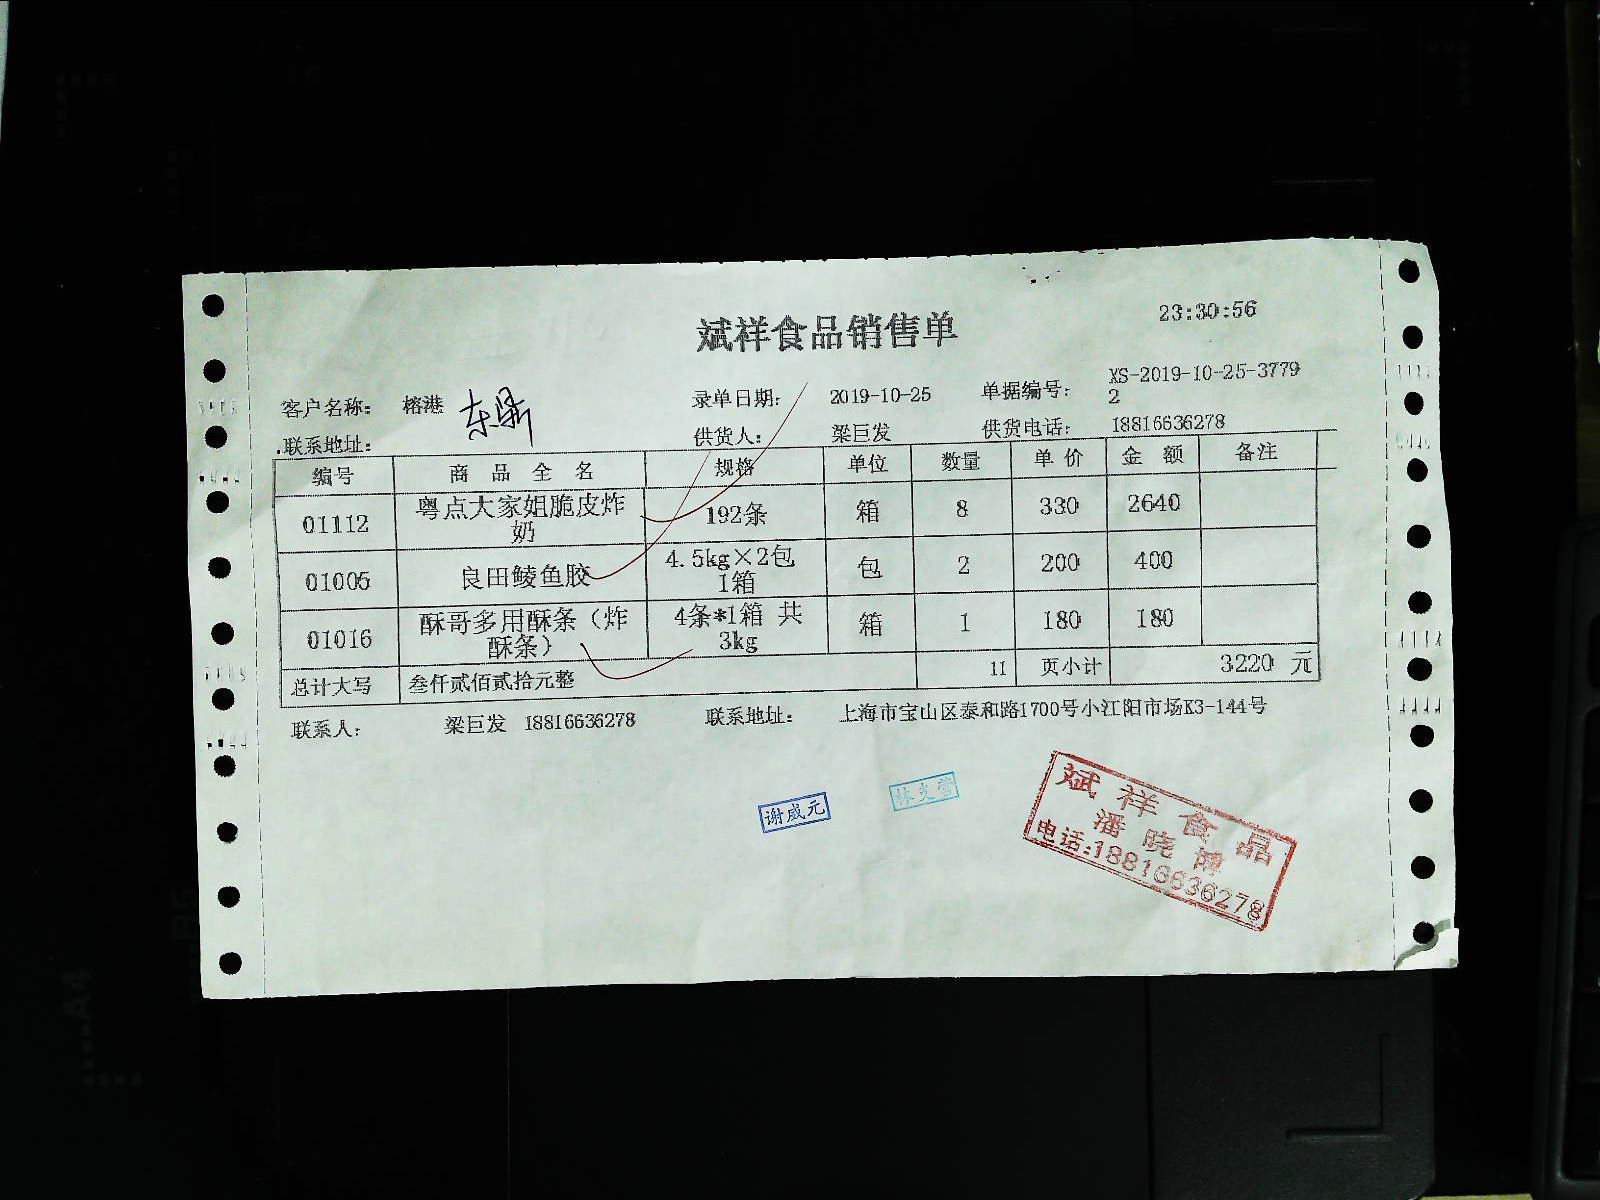 斌祥食品销售单
23:30:56
客户名称: 榕港 东鼎 录单日期: 2019-10-25 单据编号: XS-2019-10-25-3779
2
联系地址: 供货人: 梁巨发 供货电话: 18816636278
编号 商品全名 规格 单位 数量 单价 金额 备注
01112 粤点大家姐脆皮炸奶 192条 箱 8 330 2640
01005 良田鲮鱼胶 4.5kg×2包 1箱 包 2 200 400
01016 酥哥多用酥条（炸酥条） 4条*1箱 共3kg 箱 1 180 180
总计大写 叁仟贰佰贰拾元整 11 页小计 3220 元
联系人: 梁巨发 18816636278 联系地址: 上海市宝山区泰和路1700号小江阳市场K3-144号
谢威元
斌祥食品
潘晓
电话:18816636278
A4
B5